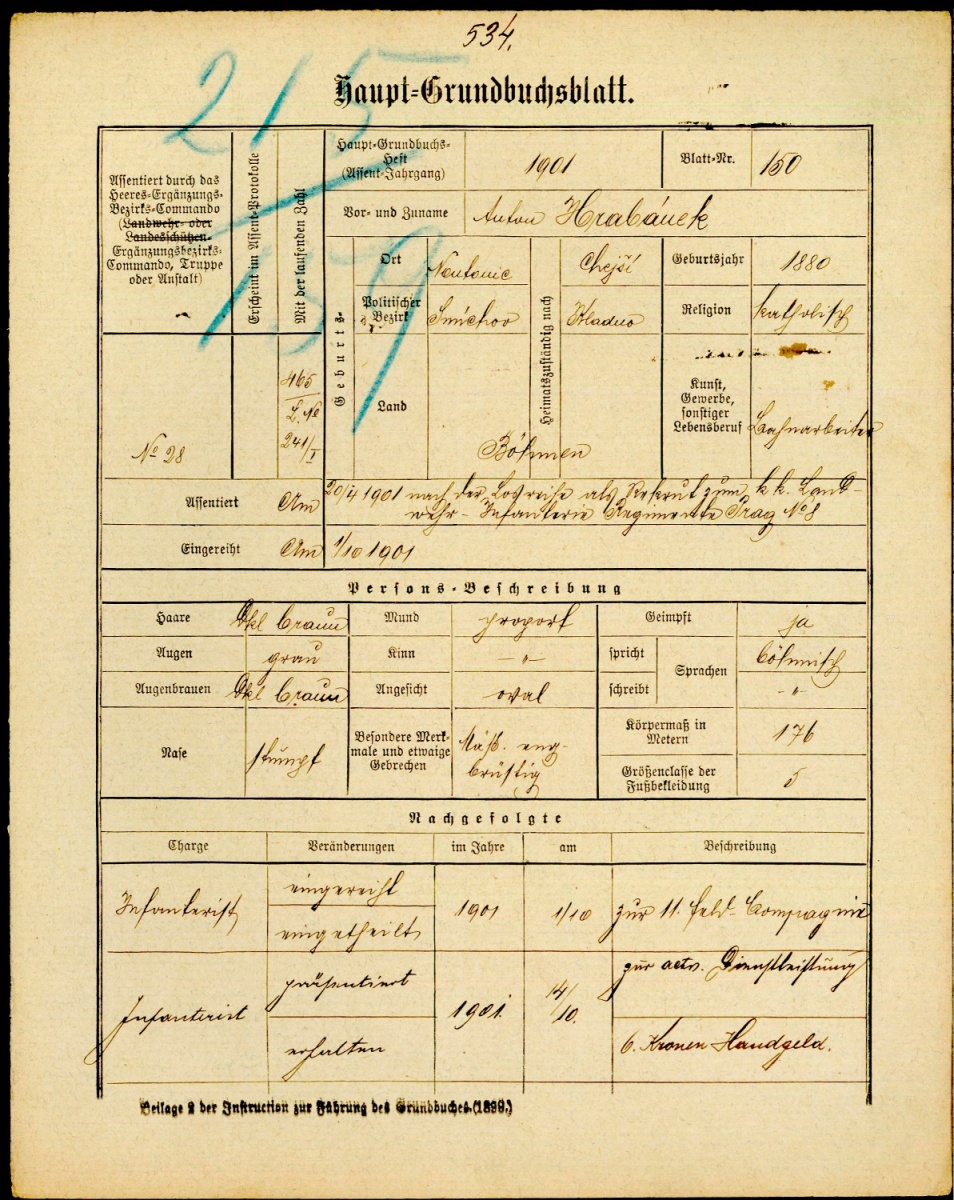 534.
215
159
Haupt-Grundbuchsblatt.
Assentiert durch das
Heeres-Ergänzungs-
Bezirks-Commando
(Landwehr- oder
Landesschützen-
Ergänzungsbezirks-
Commando, Truppe
oder Anstalt)
Erscheint im Assent-Protokolle
Mit der laufenden Zahl
Haupt-Grundbuchs-
Heft
(Assent-Jahrgang)
1901
Blatt-Nr.
150
Vor- und Zuname
Anton Hrabánek
Geburts-
Ort
Heimatszuständig nach
Geburtsjahr
1880
Politischer
Bezirk
Smíchov
Kladno
Religion
katholisch
Land
Böhmen
Kunst,
Gewerbe,
sonstiger
Lebensberuf
Bahnarbeiter
No 28
465
241/I
Assentiert
Am 20/4 1901 nach der Losreihe als Rekrut zum k. k. Land-
wehr-Infanterie Regimente Prag No 8
Eingereiht
Am 1/10 1901
Persons-Beschreibung
Haare
Dkl braun
Mund
proport
Geimpft
ja
Augen
grau
Kinn
– " –
spricht
Sprachen
böhmisch
Augenbrauen
Dkl braun
Angesicht
oval
schreibt
– " –
Nase
stumpf
Besondere Merk-
male und etwaige
Gebrechen
Mäß. eng-
brüstig
Körpermaß in
Metern
176
Größenclasse der
Fußbekleidung
5
Nachgefolgte
Charge
Veränderungen
im Jahre
am
Beschreibung
Infanterist
eingereiht
eingetheilt
1901
1/10
zur 11. Feld-Compagnie
Infanterist
präsentiert
erhalten
1901.
14/10.
zur activ. Dienstleistung
6. Kronen Handgeld.
Beilage 2 der Instruction zur Führung des Grundbuches. (1899.)